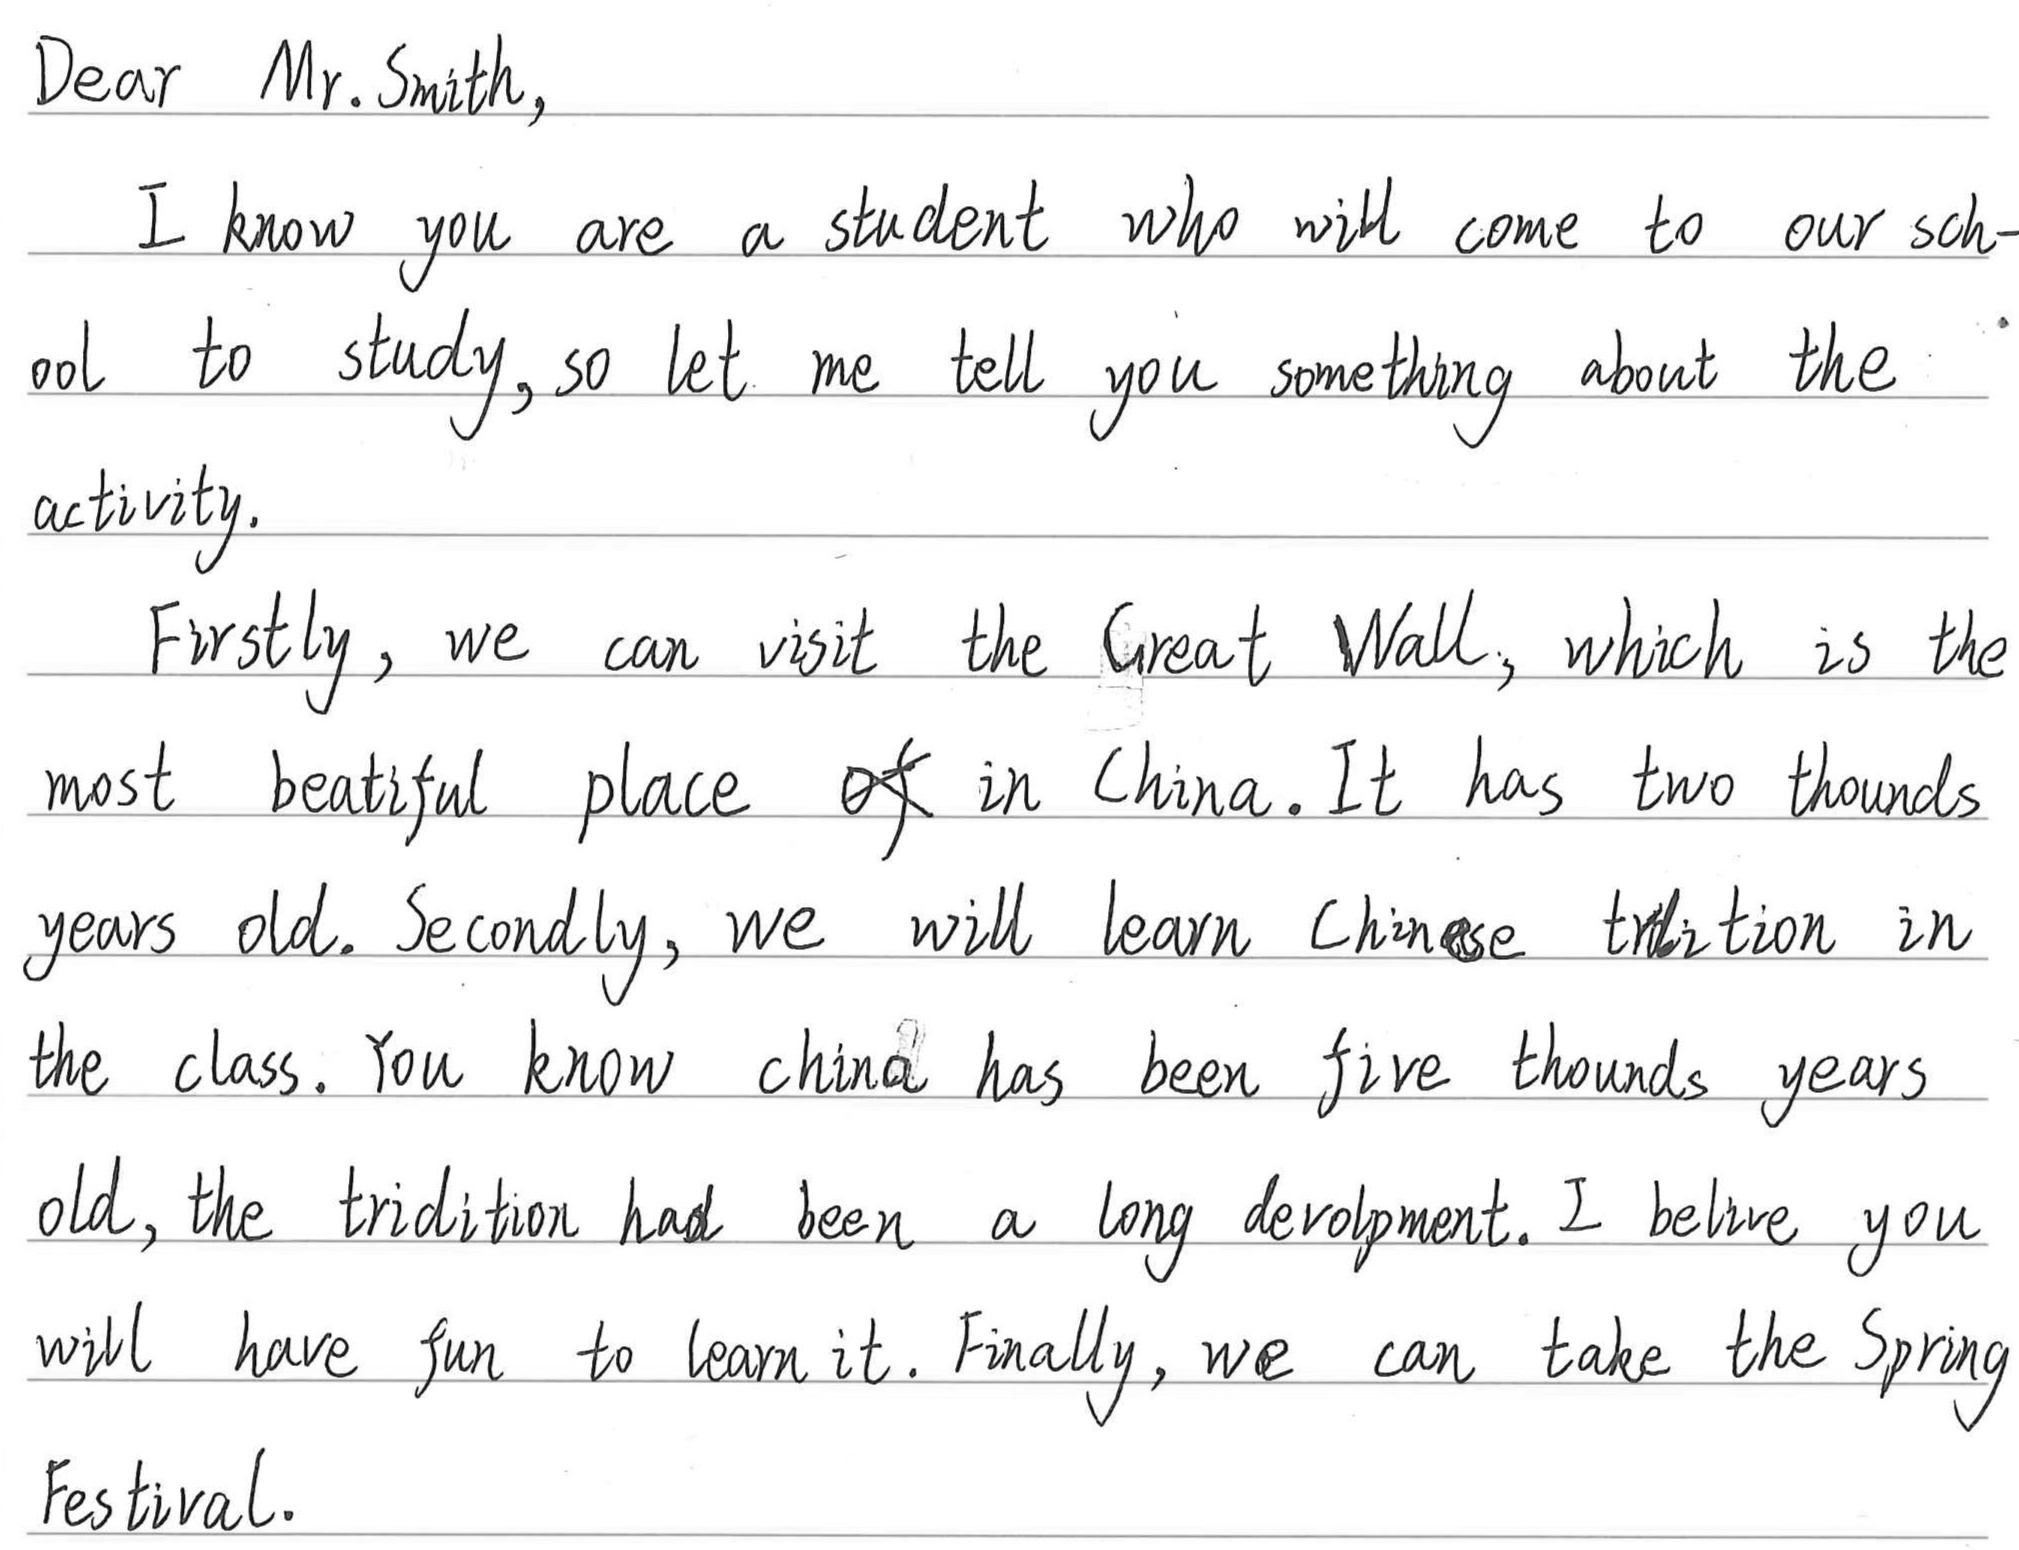 Dear Mr. Smith,
I know you are a student who will come to our sch-
ool to study, so let me tell you something about the
activity.
Firstly, we can visit the Great Wall, which is the
most beatiful place in China. It has two thounds
years old. Secondly, we will learn Chinese tridition in
the class. You know china has been five thounds years
old, the tridition had been a long devolpment. I belive you
will have fun to learn it. Finally, we can take the Spring
Festival.